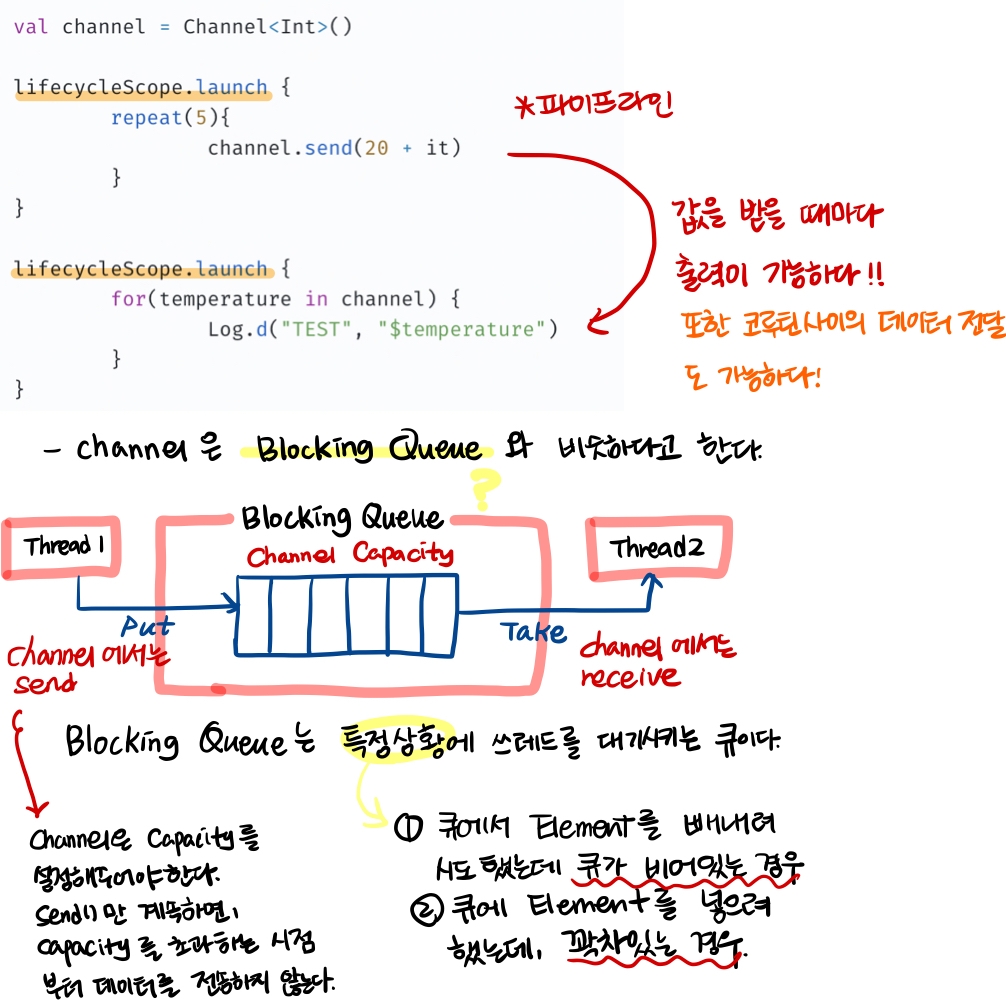 val channel = Channel<Int>()
lifecycleScope.launch {
repeat(5){
channel.send(20 + it)
}
}
lifecycleScope.launch {
for(temperature in channel) {
Log.d("TEST", "$temperature")
}
}
*파이프라인
값을 받을 때마다
출력이 가능하다!!
또한 코루틴사이의 데이터 전달
도 가능하다!
- channel은 Blocking Queue와 비슷하다고 한다.
?
Blocking Queue
Channel Capacity
Thread1
Thread2
Put
Take
Channel에서는
send
channel에서는
receive
Blocking Queue는 특정상황에 쓰레드를 대기시키는 큐이다.
Channel은 Capacity를
설정해두어야한다.
Send()만 계속하면,
Capacity를 초과하는 시점
부터 데이터를 전송하지 않는다.
① 큐에서 Element를 빼내려
시도했는데 큐가 비어있는 경우
② 큐에 Element를 넣으려
했는데, 꽉차있는 경우.